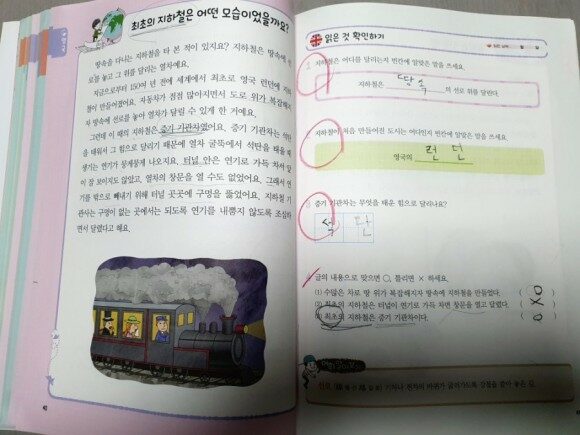 최초의 지하철은 어떤 모습이었을까요?
땅속을 다니는 지하철을 타 본 적이 있지요? 지하철은 땅속에 선
로를 놓고 그 위를 달리는 열차예요.
지금으로부터 150여 년 전에 세계에서 최초로 영국 런던에 지하
철이 만들어졌어요. 자동차가 점점 많아지면서 도로 위가 복잡해지
자 땅속에 선로를 놓아 열차가 달릴 수 있게 한 거예요.
그런데 이 때의 지하철은 증기 기관차였어요. 증기 기관차는 석탄
을 태워서 그 힘으로 달리기 때문에 열차 굴뚝에서 석탄을 태울 때
생기는 연기가 뭉게뭉게 나오지요. 터널 안은 연기로 가득 차서 앞
이 잘 보이지도 않았고, 열차의 창문을 열 수도 없었어요. 그래서 연
기를 밖으로 빼내기 위해 터널 곳곳에 구멍을 뚫었어요. 지하철 기
관사는 구멍이 없는 곳에서는 되도록 연기를 내뿜지 않도록 조심하
면서 달렸다고 해요.
읽은 것 확인하기
월 일
1 지하철은 어디를 달리는지 빈칸에 알맞은 말을 쓰세요.
지하철은 땅속 의 선로 위를 달린다.
2 지하철이 처음 만들어진 도시는 어디인지 빈칸에 알맞은 말을 쓰세요.
영국의 런던
3 증기 기관차는 무엇을 태운 힘으로 달리나요?
석탄
4 글의 내용으로 맞으면 ○, 틀리면 × 하세요.
(1) 수많은 차로 땅 위가 복잡해지자 땅속에 지하철을 만들었다. ( ○ )
(2) 최초의 지하철은 터널이 연기로 가득 차면 창문을 열고 달렸다. ( X )
(3) 최초의 지하철은 증기 기관차이다. ( ○ )
선로 기차나 전차의 바퀴가 굴러가도록 강철을 깔아 놓은 길.